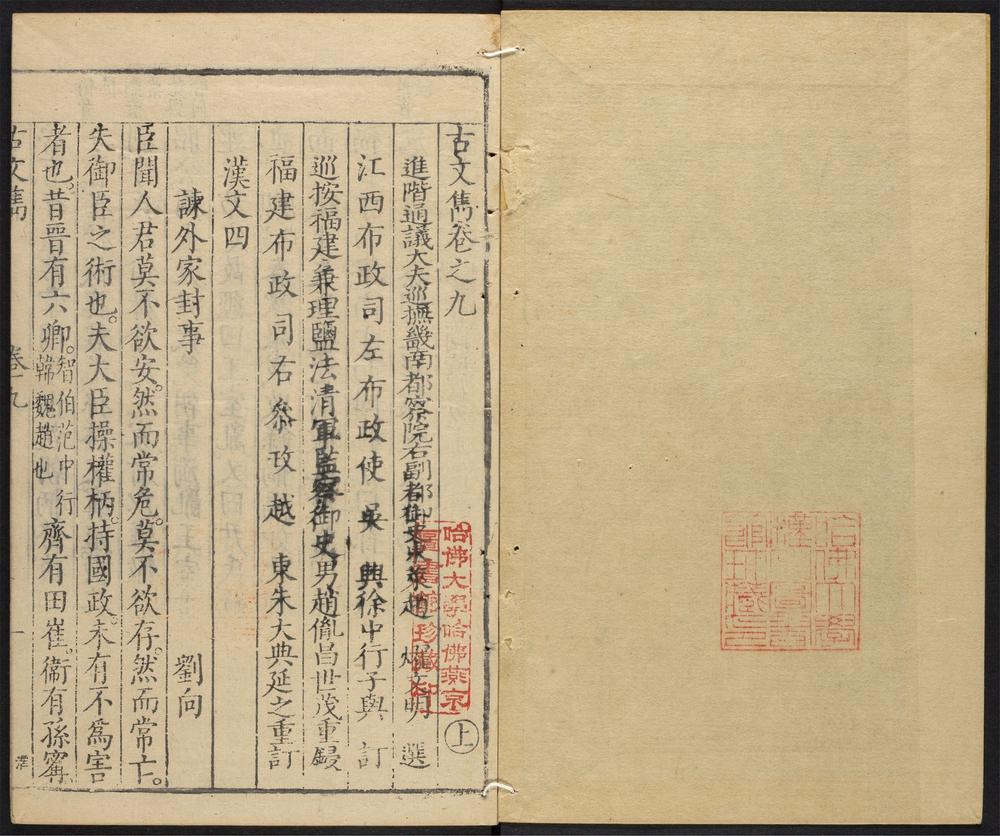 古文雋卷之九 上
進階通議大夫巡撫畿南都察院右副都御史東萊趙燿文明 選
江西布政司左布政使吳興徐中行子與 訂
巡按福建兼理鹽法清軍監察御史男趙胤昌世茂重鋟
福建布政司右參政越東朱大典延之重訂
漢文四
諫外家封事 劉向
臣聞人君莫不欲安。然而常危。莫不欲存。然而常亡。
失御臣之術也。夫大臣操權柄。持國政。未有不爲害
者也。昔晉有六卿。智伯范中行韓魏趙也 齊有田崔。衛有孫甯
古文雋 卷九 一
哈佛大學哈佛燕京
圖書館珍藏印
哈佛大學
漢和圖書
館珍藏印